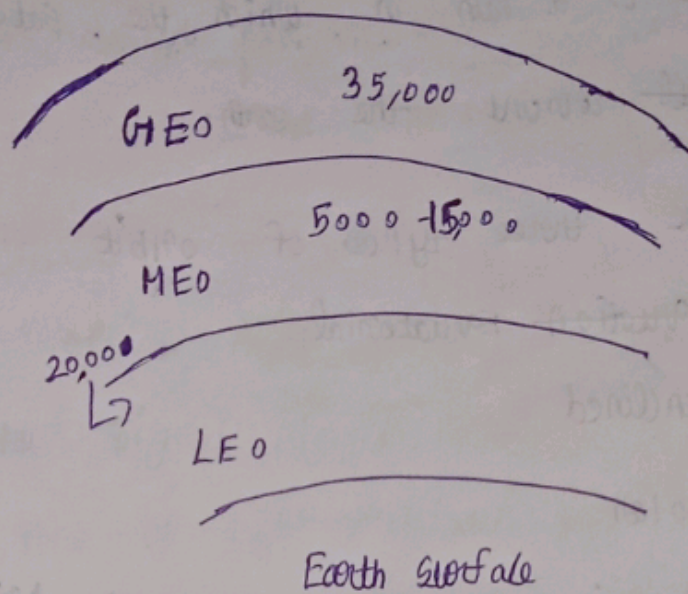 35,000
GEO
5000-15,000
MEO
20,000
LEO
Earth surface